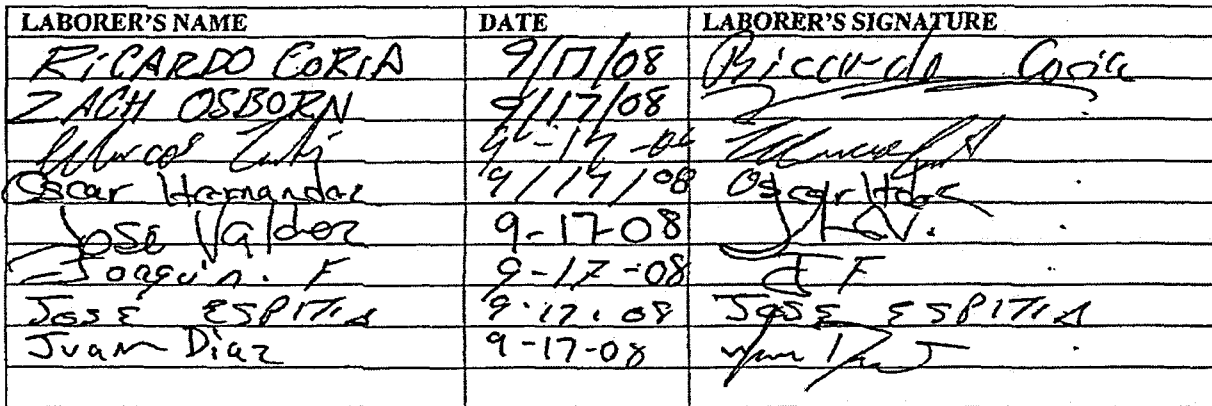 LABORER'S NAME DATE LABORER'S SIGNATURE
RiCARDO CORIA 9/17/08 Riccardo Coria
ZACH OSBORN 9/17/08
Marcos 9-17-08
Oscar Hernandez 9/17/08 Oscar Hdez
Jose Valdez 9-17-08 JHV.
Joaquin. F 9-17-08 J F
JOSE ESPITIA 9.17.08 JOSE ESPITIA
Juan Diaz 9-17-08